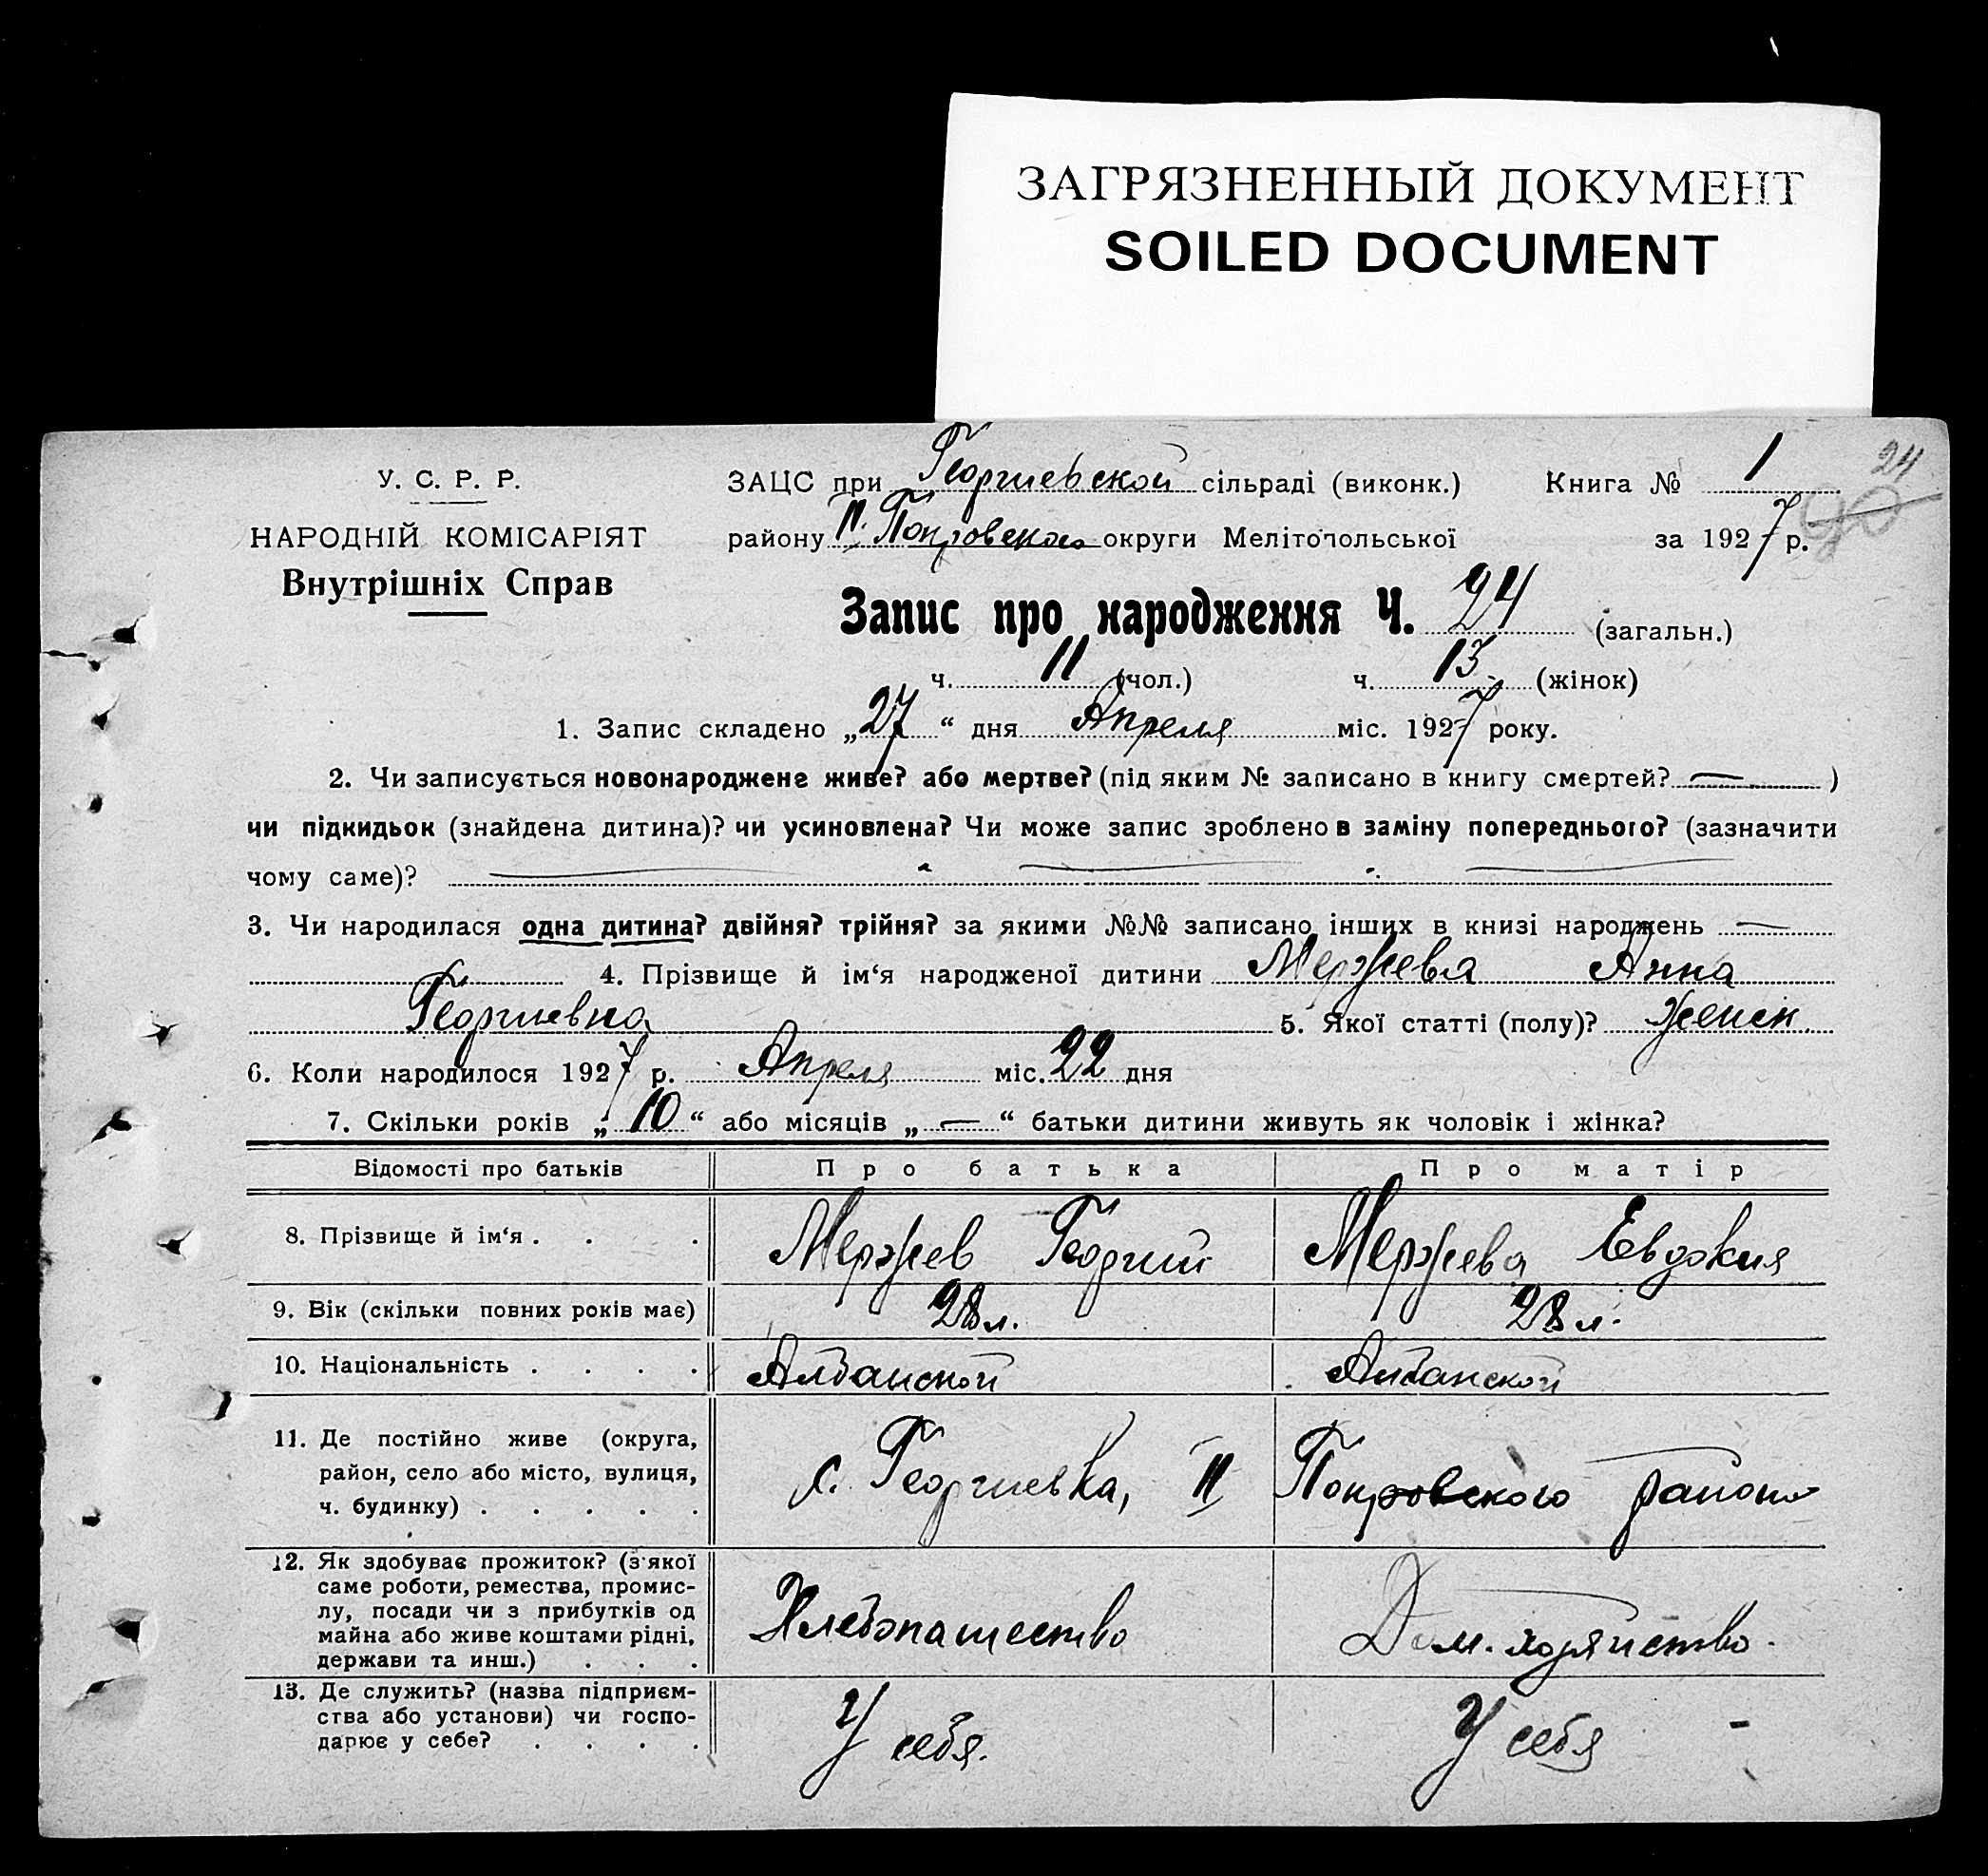 ЗАГРЯЗНЕННЫЙ ДОКУМЕНТ
SOILED DOCUMENT
У. С. Р. Р.
НАРОДНІЙ КОМІСАРІЯТ
Внутрішніх Справ
ЗАЦС при Георгиевской сільраді (виконк.) Книга № 1
24
90
району II. Покровского округи Мелітопольської за 1927 р.
Запис про народження Ч. 24 (загальн.)
ч. 11 (чол.) ч. 13 (жінок)
1. Запис складено „27“ дня Апреля міс. 1927 року.
2. Чи записується новонароджене живе? або мертве? (під яким № записано в книгу смертей? — )
чи підкидьок (знайдена дитина)? чи усиновлена? Чи може запис зроблено в заміну попереднього? (зазначити
чому саме)?
3. Чи народилася одна дитина? двійня? трійня? за якими №№ записано інших в книзі народжень —
4. Прізвище й ім‘я народженої дитини Мержева Анна
Георгиевна 5. Якої статті (полу)? женск.
6. Коли народилося 1927 р. Апреля міс. 22 дня
7. Скільки років „10“ або місяців „—“ батьки дитини живуть як чоловік і жінка?
Відомості про батьків Про батька Про матір
8. Прізвище й ім‘я . . . Мержев Георгий Мержева Евдокия
9. Вік (скільки повних років має) 28 л. 28 л.
10. Національність . . . . Албанской Албанской
11. Де постійно живе (округа,
район, село або місто, вулиця,
ч. будинку) . . . . .
с. Георгиевка, II Покровского района
12. Як здобуває прожиток? (з якої
саме роботи, ремества, промис-
лу, посади чи з прибутків од
майна або живе коштами рідні,
держави та инш.) . . .
Хлебопашество Дом. хозяйство.
13. Де служить? (назва підприєм-
ства або установи) чи госпо-
дарює у себе? . . . .
У себя. У себя -